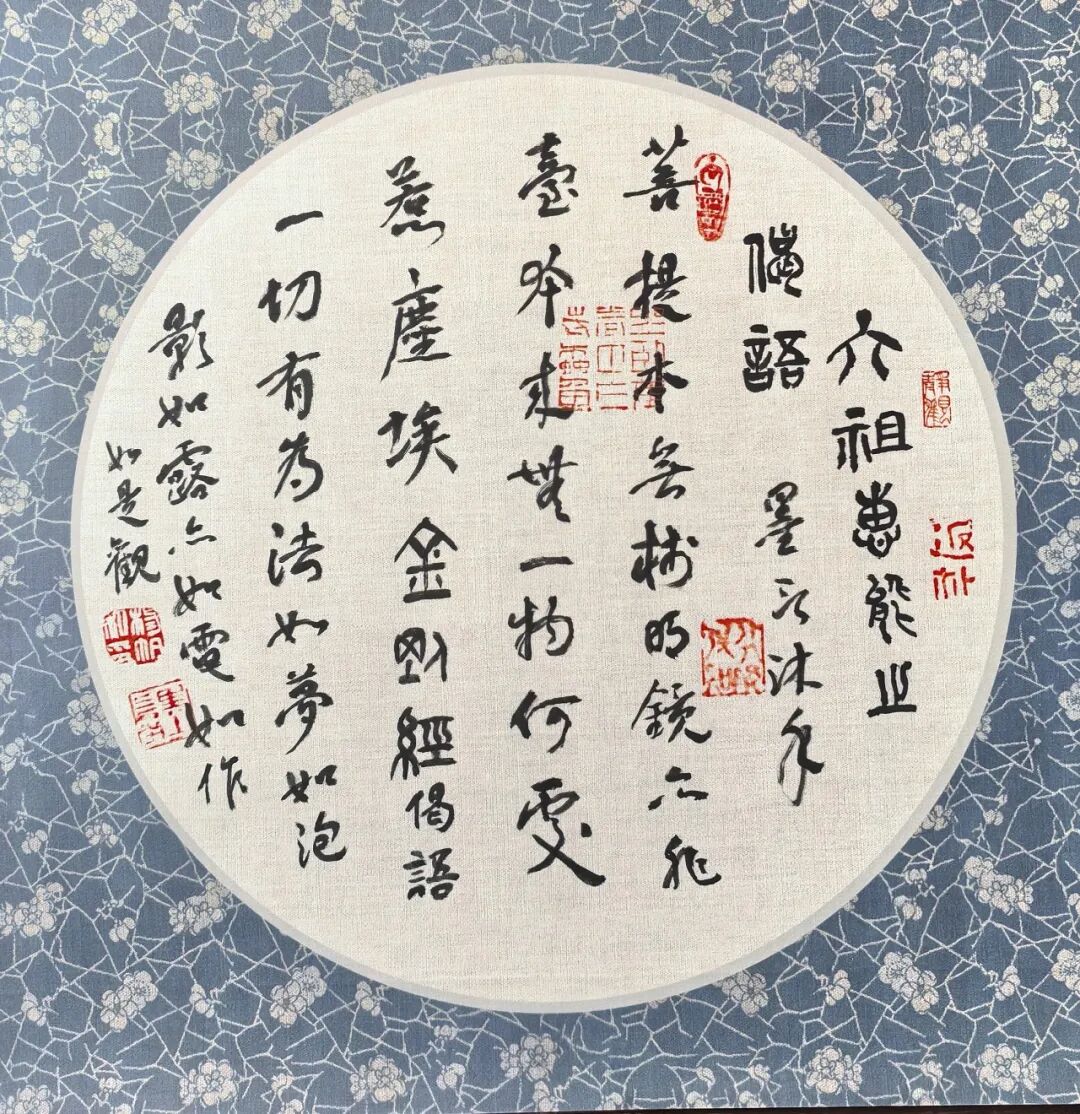 六祖惠能之
偈語
墨 沐手
菩提本無樹明鏡亦非
臺本來無一物何處
惹塵埃金剛經偈語
一切有為法如夢如泡
影如露亦如電如作
如是觀
返朴